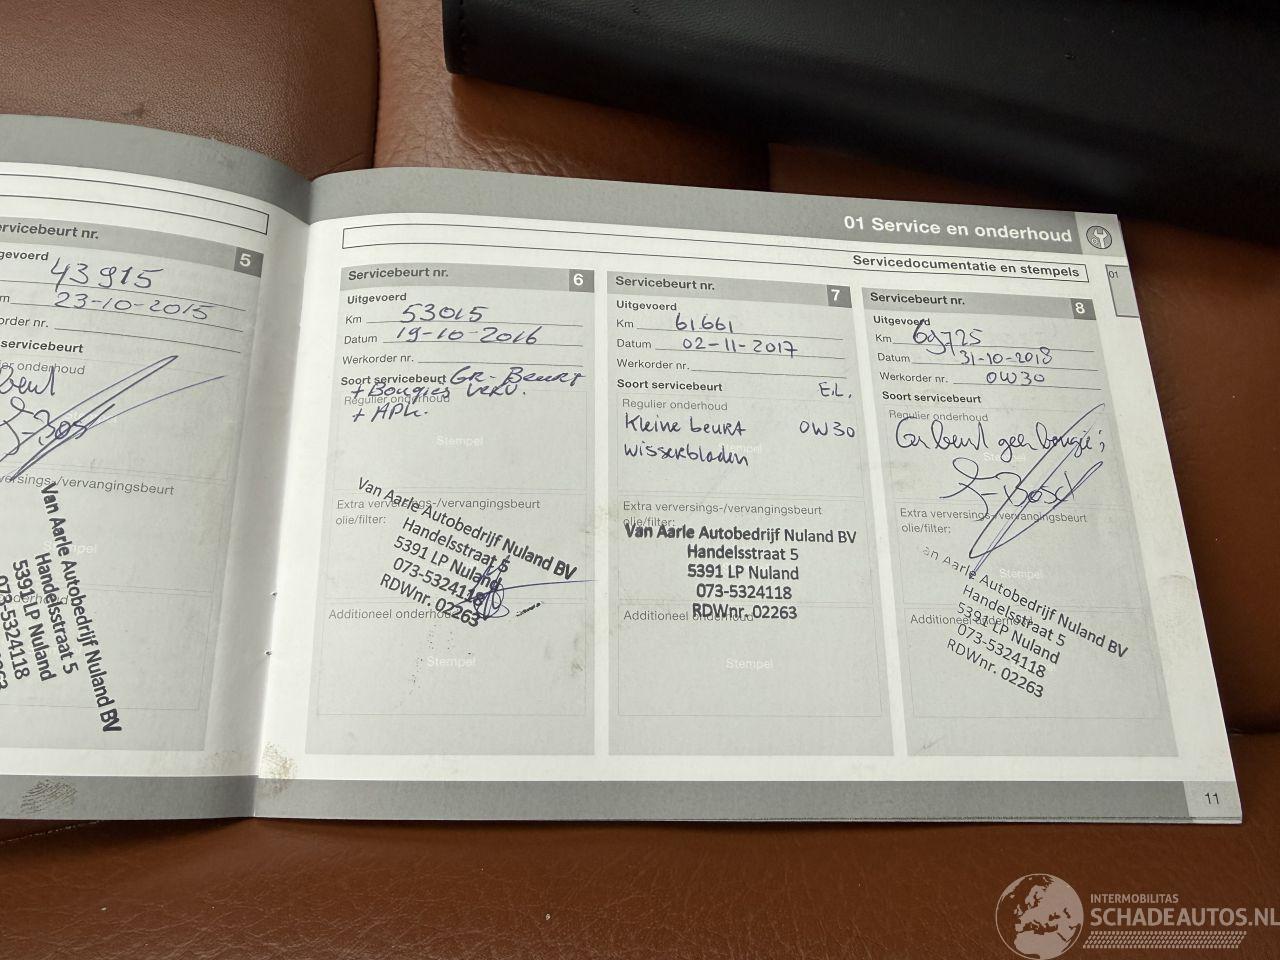 ervicebeurt nr. 5
gevoerd
43915
m 23-10-2015
korder nr.
servicebeurt
ier onderhoud
beurt
-/vervangingsbeurt
Van Aarle Autobedrijf Nuland BV
Handelsstraat 5
5391 LP Nuland
073-5324118
01 Service en onderhoud
Servicedocumentatie en stempels
01
Servicebeurt nr. 6
Uitgevoerd
Km 53015
Datum 19-10-2016
Werkorder nr.
Soort servicebeurt GR-Beurt
+ Bougies verv.
Regulier onderhoud
+ APK.
Stempel
Extra verversings-/vervangingsbeurt
olie/filter:
Van Aarle Autobedrijf Nuland BV
Handelsstraat 5
5391 LP Nuland
073-5324118
RDWnr. 02263
Additioneel onderhoud
Stempel
Servicebeurt nr. 7
Uitgevoerd
Km 61661
Datum 02-11-2017
Werkorder nr.
Soort servicebeurt E.L.
Regulier onderhoud
Kleine beurt 0W30
wisserbladen
Extra verversings-/vervangingsbeurt
olie/filter:
Van Aarle Autobedrijf Nuland BV
Handelsstraat 5
5391 LP Nuland
073-5324118
RDWnr. 02263
Additioneel onderhoud
Stempel
Servicebeurt nr. 8
Uitgevoerd
Km 69725
Datum 31-10-2018
Werkorder nr. 0W30
Soort servicebeurt
Regulier onderhoud
beurt geen bougie's
Stempel
Extra verversings-/vervangingsbeurt
olie/filter:
Stempel
Van Aarle Autobedrijf Nuland BV
Handelsstraat 5
5391 LP Nuland
073-5324118
RDWnr. 02263
Additioneel onderhoud
11
INTERMOBILITAS
SCHADEAUTOS.NL